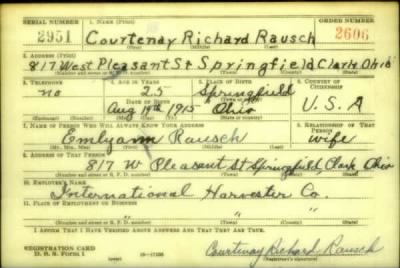 SERIAL NUMBER 1. NAME (Print) ORDER NUMBER
2951 Courtenay Richard Rausch 2606
(First) (Middle) (Last)
2. ADDRESS (Print)
817 West Pleasant St Springfield Clark Ohio
(Number and street or R. F. D. number) (Town) (County) (State)
3. TELEPHONE 4. AGE IN YEARS 5. PLACE OF BIRTH 6. COUNTRY OF CITIZENSHIP
no 25 Springfield
DATE OF BIRTH (Town or county)
Aug 14th 1915 Ohio U.S.A
(Mo.) (Day) (Yr.) (State or country)
7. NAME OF PERSON WHO WILL ALWAYS KNOW YOUR ADDRESS 8. RELATIONSHIP OF THAT PERSON
Emlyann Rausch wife
(Mr., Mrs., Miss) (First) (Middle) (Last)
9. ADDRESS OF THAT PERSON
817 W Pleasant St Springfield, Clark Ohio
(Number and street or R. F. D. number) (Town) (County) (State)
10. EMPLOYER'S NAME
International Harvester Co.
11. PLACE OF EMPLOYMENT OR BUSINESS
" " "
(Number and street or R. F. D. number) (Town) (County) (State)
I AFFIRM THAT I HAVE VERIFIED ABOVE ANSWERS AND THAT THEY ARE TRUE.
REGISTRATION CARD
D. S. S. Form 1 (over) 16-17105 Courtenay Richard Rausch
(Registrant's signature)